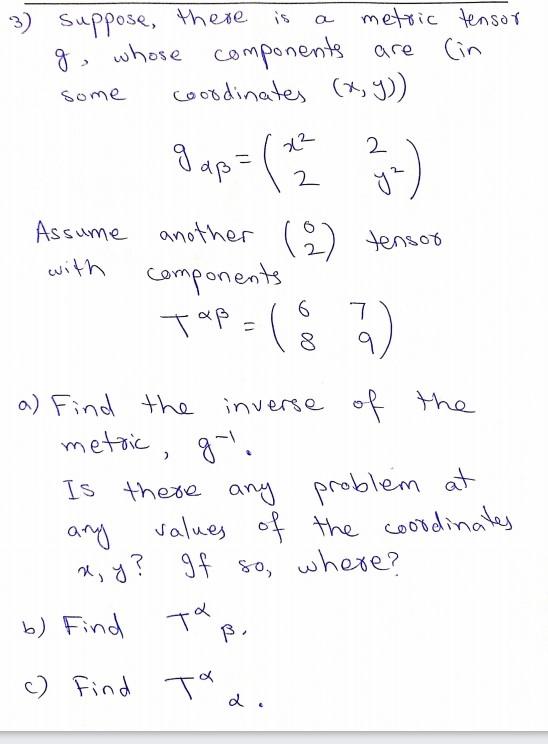 3) Suppose, there is a metric tensor
g, whose components are (in
some coordinates (x, y))
g αβ = ( x² 2
2 y² )
Assume another ( 0
2 ) tensor
with components
T αβ = ( 6 7
8 9 )
a) Find the inverse of the
metric, g⁻¹.
Is there any problem at
any values of the coordinates
x, y? If so, where?
b) Find T α β.
c) Find T α α.